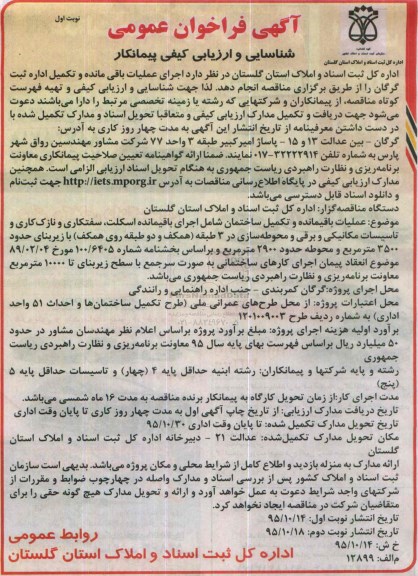 نوبت اول
آگهی فراخوان عمومی
شناسایی و ارزیابی کیفی پیمانکار
اداره کل ثبت اسناد و املاک استان گلستان
اداره کل ثبت اسناد و املاک استان گلستان در نظر دارد اجرای عملیات باقی مانده و تکمیل اداره ثبت
گرگان را از طریق برگزاری مناقصه انجام دهد. لذا جهت شناسایی و ارزیابی کیفی و تهیه فهرست
کوتاه مناقصه، از پیمانکاران و شرکتهایی که رشته یا زمینه تخصصی مرتبط را دارا می‌باشند دعوت
می‌شود جهت دریافت و تکمیل مدارک ارزیابی کیفی و متعاقبا تحویل اسناد و مدارک تکمیل شده با
در دست داشتن معرفینامه از تاریخ انتشار این آگهی به مدت چهار روز کاری به آدرس:
گرگان - بین عدالت ۱۳ و ۱۵ - پاساژ امیرکبیر طبقه ۳ واحد ۷۷ شرکت مشاور مهندسین رواق شهر
پارس به شماره تلفن ۳۲۲۲۲۹۱۴-۰۱۷ نمایند. ضمنا ارائه گواهینامه تعیین صلاحیت پیمانکاری معاونت
برنامه‌ریزی و نظارت راهبردی ریاست جمهوری به هنگام تحویل اسناد ارزیابی الزامی است. همچنین
مدارک ارزیابی کیفی در پایگاه اطلاع رسانی مناقصات به آدرس http://iets.mporg.ir جهت ثبت‌نام
و دانلود اسناد قابل دسترسی می‌باشد.
دستگاه مناقصه‌گزار: اداره کل ثبت اسناد و املاک استان گلستان
موضوع: عملیات باقیمانده و تکمیل ساختمان شامل اجرای باقیمانده اسکلت، سفتکاری و نازک‌کاری و
تاسیسات مکانیکی و برقی و محوطه‌سازی در ۳ طبقه (همکف و دو طبقه روی همکف) با زیربنای حدود
۳۵۰۰ مترمربع و محوطه حدود ۲۹۰۰ مترمربع و براساس بخشنامه شماره ۱۰۰/۶۴۰۵ مورخ ۸۹/۰۲/۰۴
موضوع انعقاد پیمان اجرای کارهای ساختمانی به صورت سرجمع با سطح زیربنای تا ۱۰۰۰۰ مترمربع
معاونت برنامه‌ریزی و نظارت راهبردی ریاست جمهوری می‌باشد.
محل اجرای پروژه: گرگان کمربندی - جنب اداره راهنمایی و رانندگی
محل اعتبارات پروژه: از محل طرح‌های عمرانی ملی (طرح تکمیل ساختمان‌ها و احداث ۵۱ واحد
اداری) به شماره ردیف طرح ۱۲۰۱۰۰۹۰۰۳
برآورد اولیه هزینه اجرای پروژه: مبلغ برآورد پروژه براساس اعلام نظر مهندسان مشاور در حدود
۵۰ میلیارد ریال براساس فهرست بهای پایه سال ۹۵ معاونت برنامه‌ریزی و نظارت راهبردی ریاست
جمهوری
رشته و پایه شرکتها و پیمانکاران: رشته ابنیه حداقل پایه ۴ (چهار) و تاسیسات حداقل پایه ۵
(پنج)
مدت اجرای کار: از زمان تحویل کارگاه به پیمانکار برنده مناقصه به مدت ۱۶ ماه شمسی می‌باشد.
تاریخ دریافت مدارک ارزیابی: از تاریخ چاپ آگهی اول به مدت چهار روز کاری تا پایان وقت اداری
تاریخ تحویل مدارک تکمیل شده: تا پایان وقت اداری ۹۵/۱۰/۳۰
مکان تحویل مدارک تکمیل‌شده: عدالت ۲۱ - دبیرخانه اداره کل ثبت اسناد و املاک استان
گلستان
ارائه مدارک به منزله بازدید و اطلاع کامل از شرایط محلی و مکان پروژه می‌باشد. بدیهی است سازمان
ثبت اسناد و املاک کشور پس از بررسی اسناد و مدارک واصله در چهارچوب ضوابط و مقررات از
شرکتهای واجد شرایط دعوت به عمل خواهد آورد و ارائه و تحویل مدارک هیچ گونه حقی را برای
متقاضیان شرکت در مناقصه ایجاد نخواهد کرد.
تاریخ انتشار نوبت اول: ۹۵/۱۰/۱۴
تاریخ انتشار نوبت دوم: ۹۵/۱۰/۱۸
خ ش: ۹۵/۱۰/۱۴
م‌الف: ۱۲۸۹۹
روابط عمومی
اداره کل ثبت اسناد و املاک استان گلستان